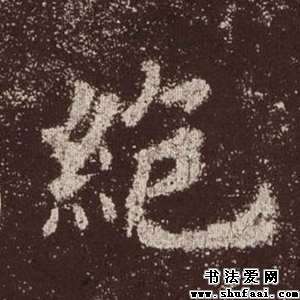 絶
书法爱网
www.shufaai.com